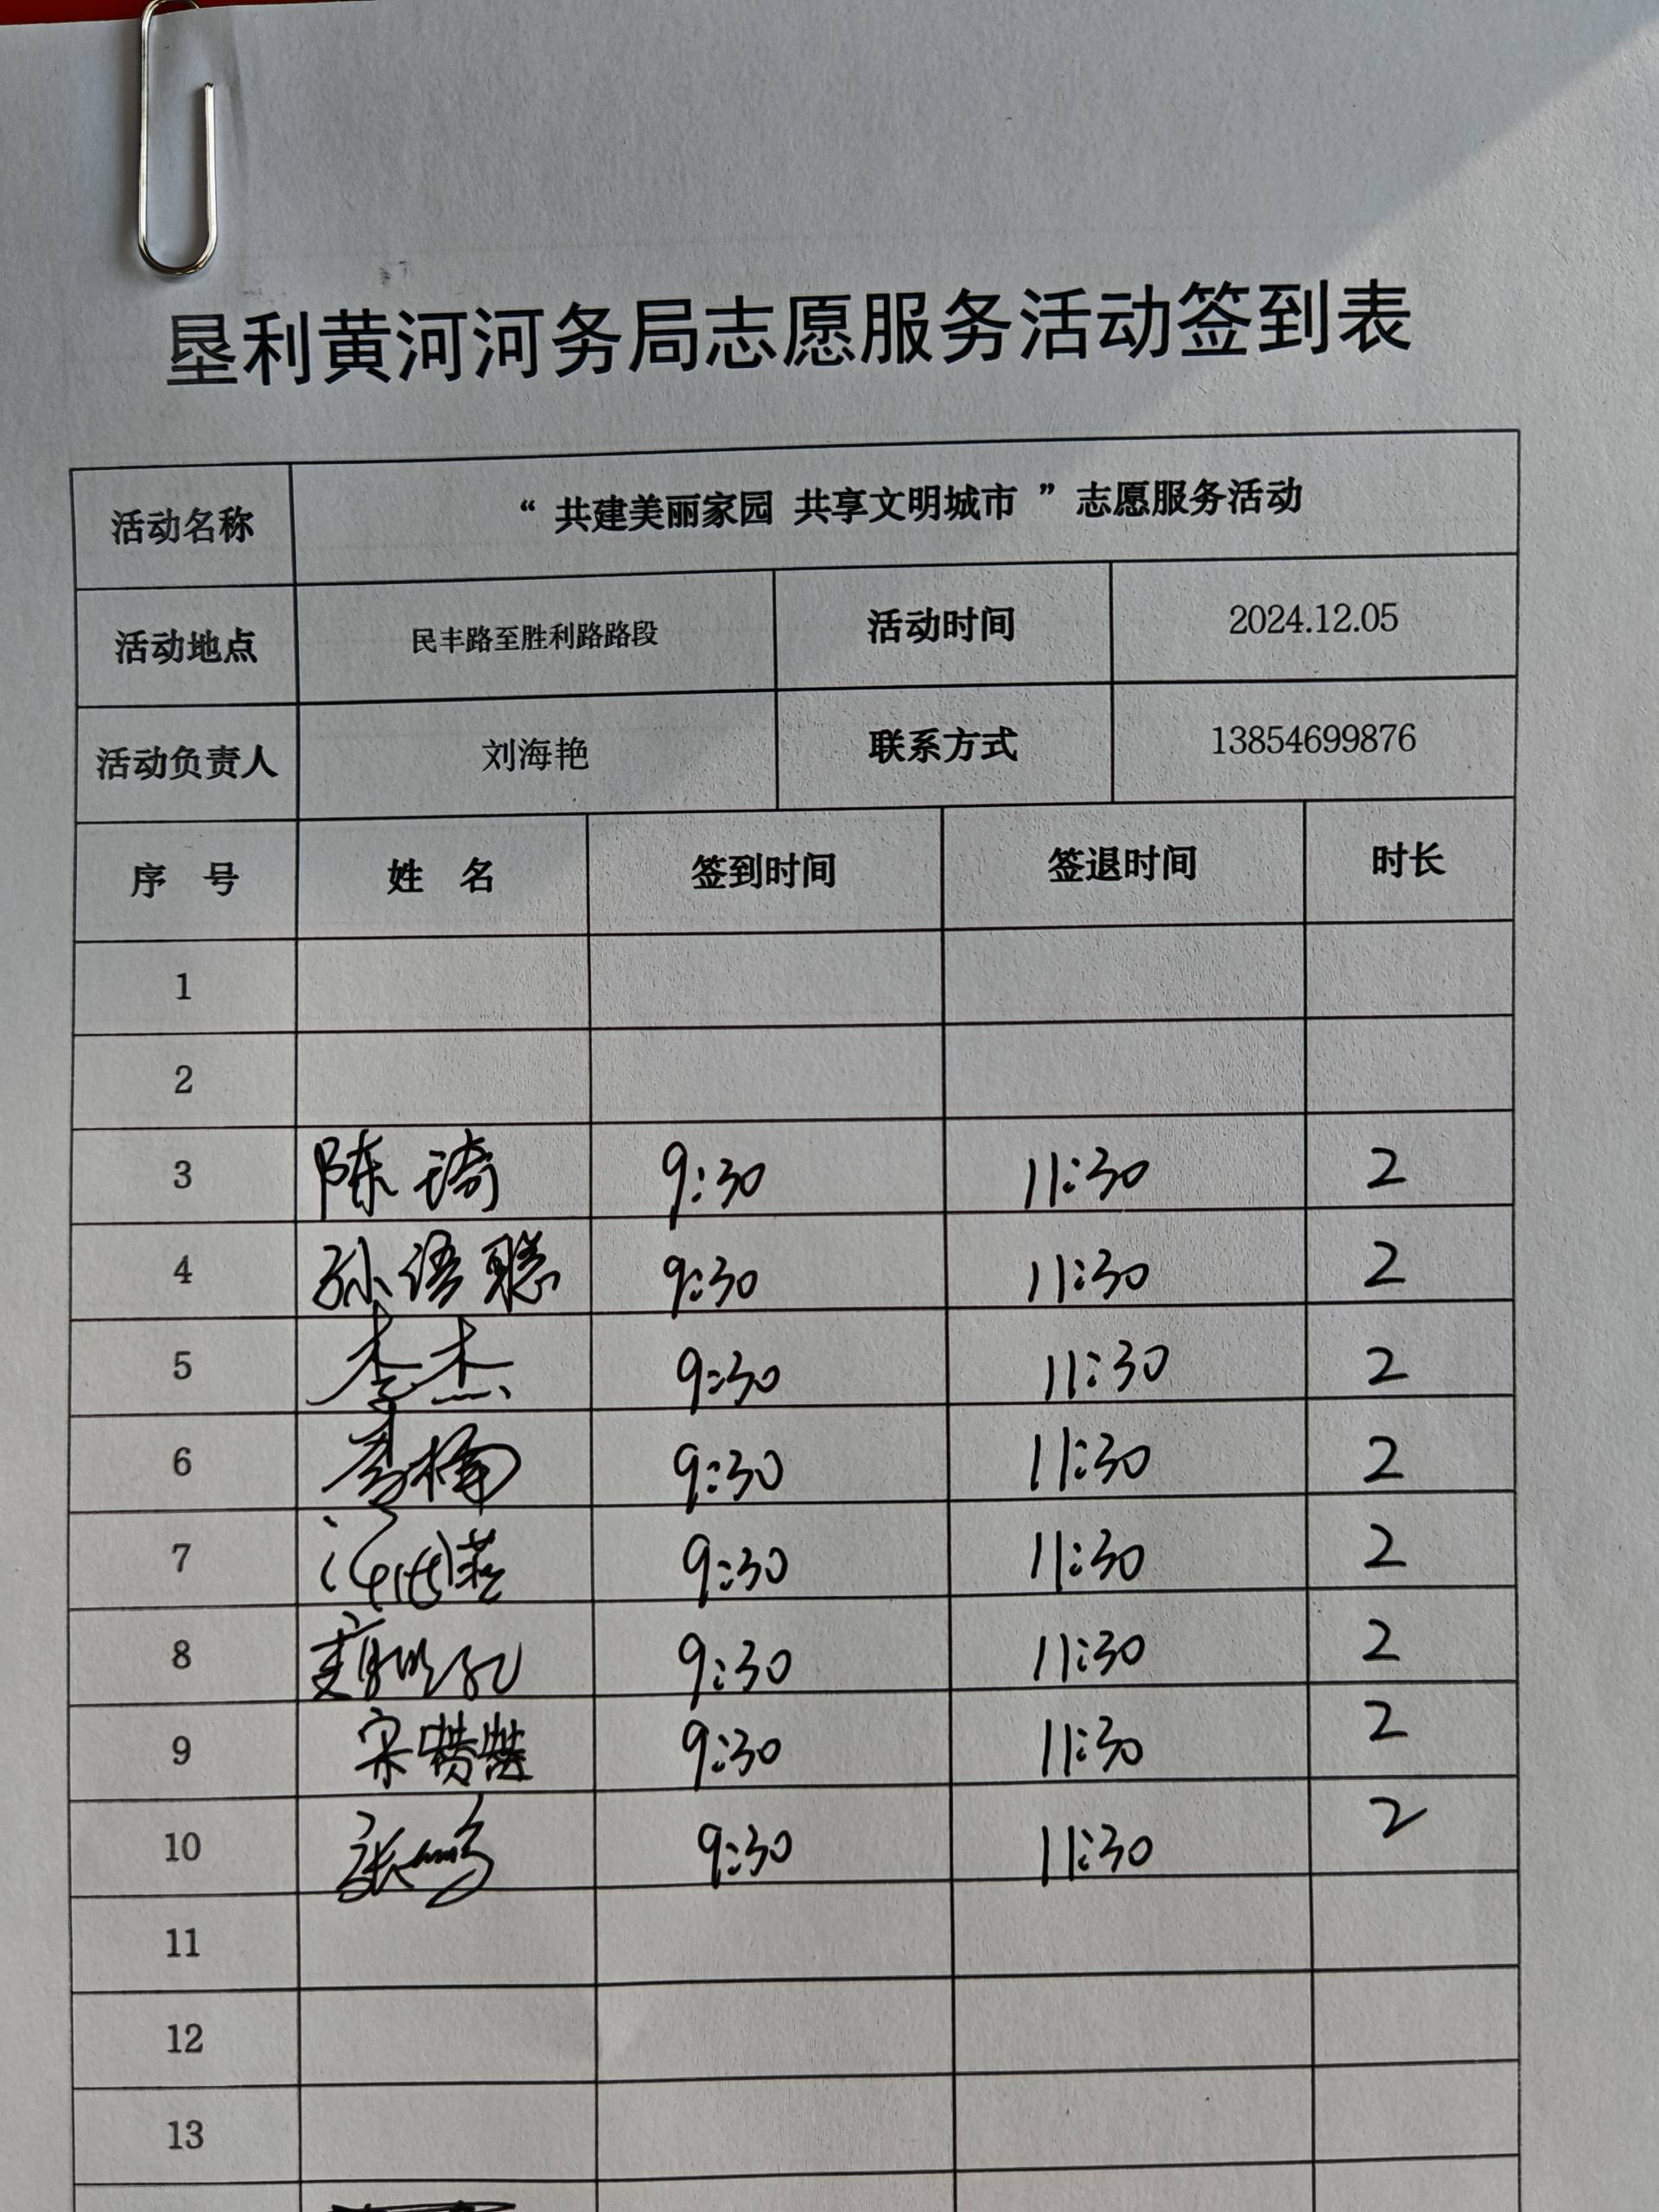 垦利黄河河务局志愿服务活动签到表
活动名称 “共建美丽家园 共享文明城市”志愿服务活动
活动地点 民丰路至胜利路路段 活动时间 2024.12.05
活动负责人 刘海艳 联系方式 13854699876
序 号 姓 名 签到时间 签退时间 时长
1
2
3 陈琦 9:30 11:30 2
4 孙语聪 9:30 11:30 2
5 李杰 9:30 11:30 2
6 李楠 9:30 11:30 2
7 9:30 11:30 2
8 9:30 11:30 2
9 宋 9:30 11:30 2
10 张鹏 9:30 11:30 2
11
12
13